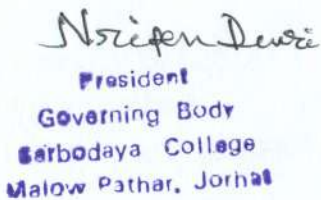 Nripen Deuri
President
Governing Body
Sarbodaya College
Malow Pathar, Jorhat